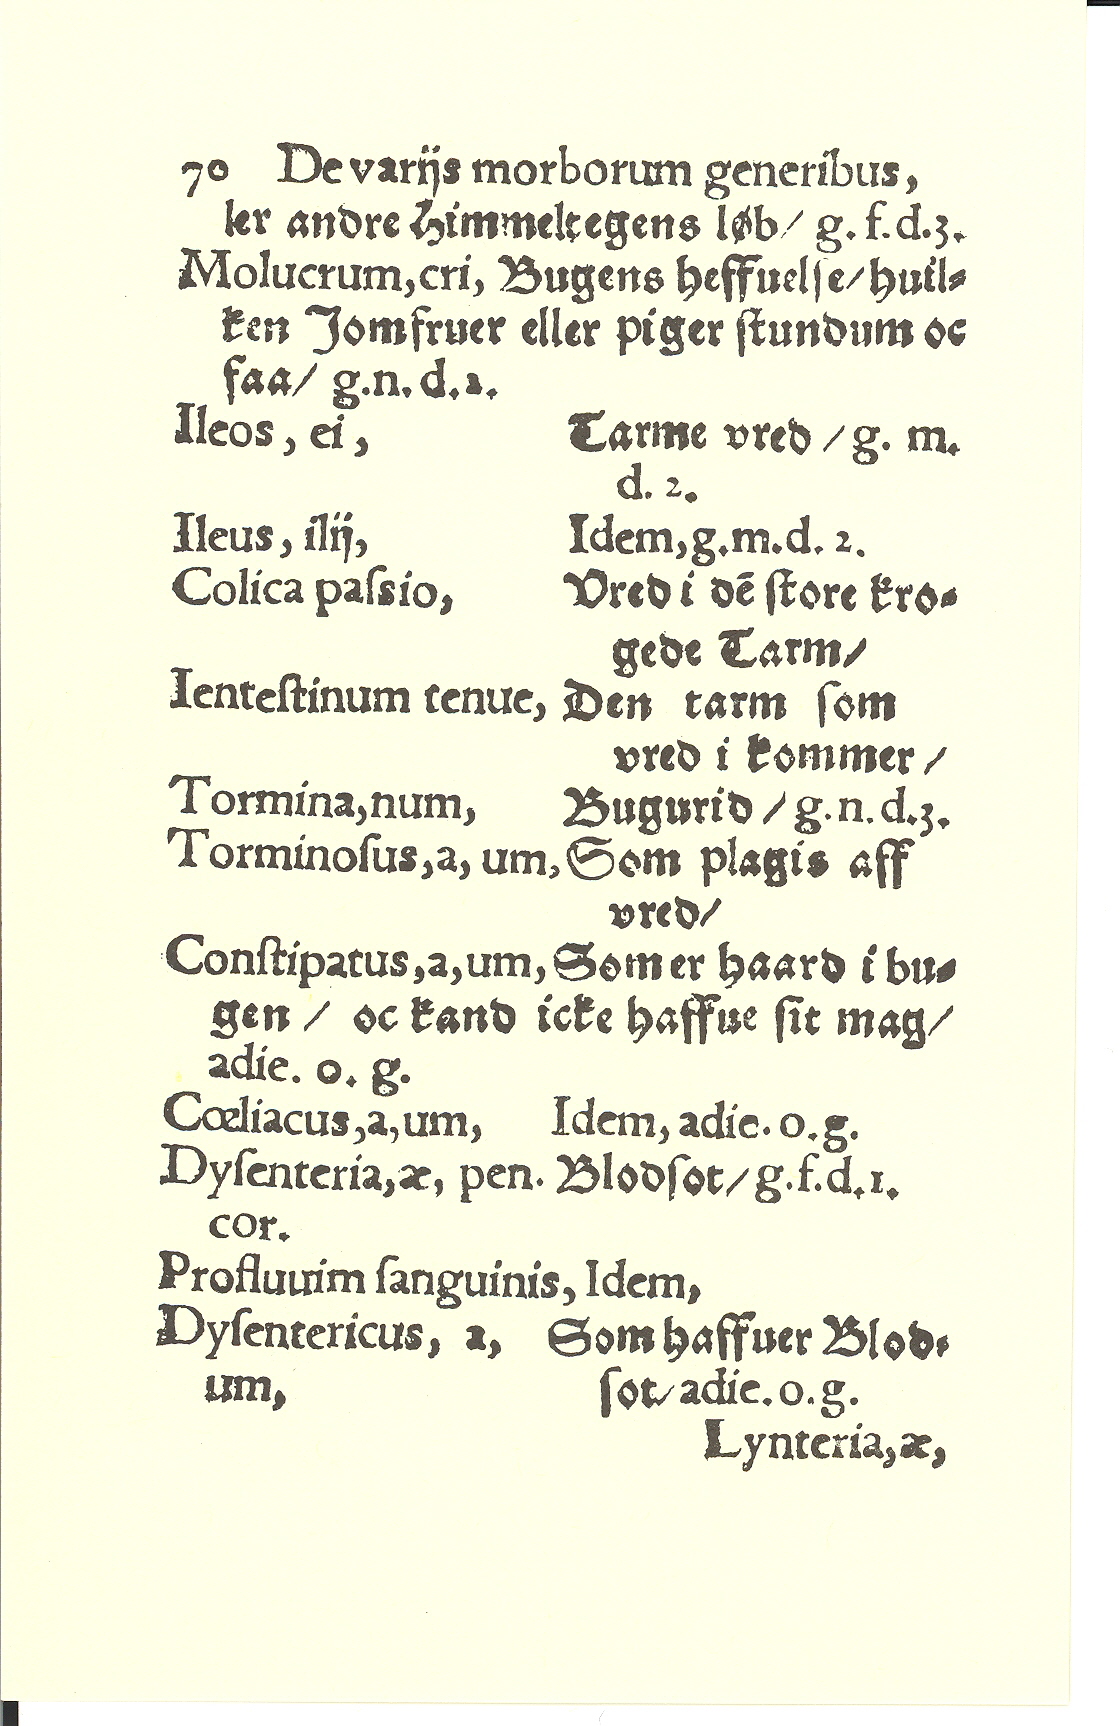 70 De varijs morborum generibus,
ler andre Himmeltegens løb/ g. f. d. 3.
Molucrum, cri, Bugens heffuelse/ huil-
ken Jomfruer eller piger stundum oc
faa/ g. n. d. 2.
Ileos, ei, Tarme vred / g. m.
d. 2.
Ileus, ilij, Idem, g. m. d. 2.
Colica passio, Vred i dē store kro-
gede Tarm/
Ientestinum tenue, Den tarm som
vred i kommer /
Tormina, num, Bugurid / g. n. d. 3.
Torminosus, a, um, Som plagis aff
vred/
Constipatus, a, um, Som er haard i bu-
gen / oc kand icke haffue sit mag/
adie. o. g.
Cœliacus, a, um, Idem, adie. o. g.
Dysenteria, æ, pen. Blodsot/ g. f. d. 1.
cor.
Profluuium sanguinis, Idem,
Dysentericus, a, Som haffuer Blod-
um, sot/ adie. o. g.
Lynteria, æ,